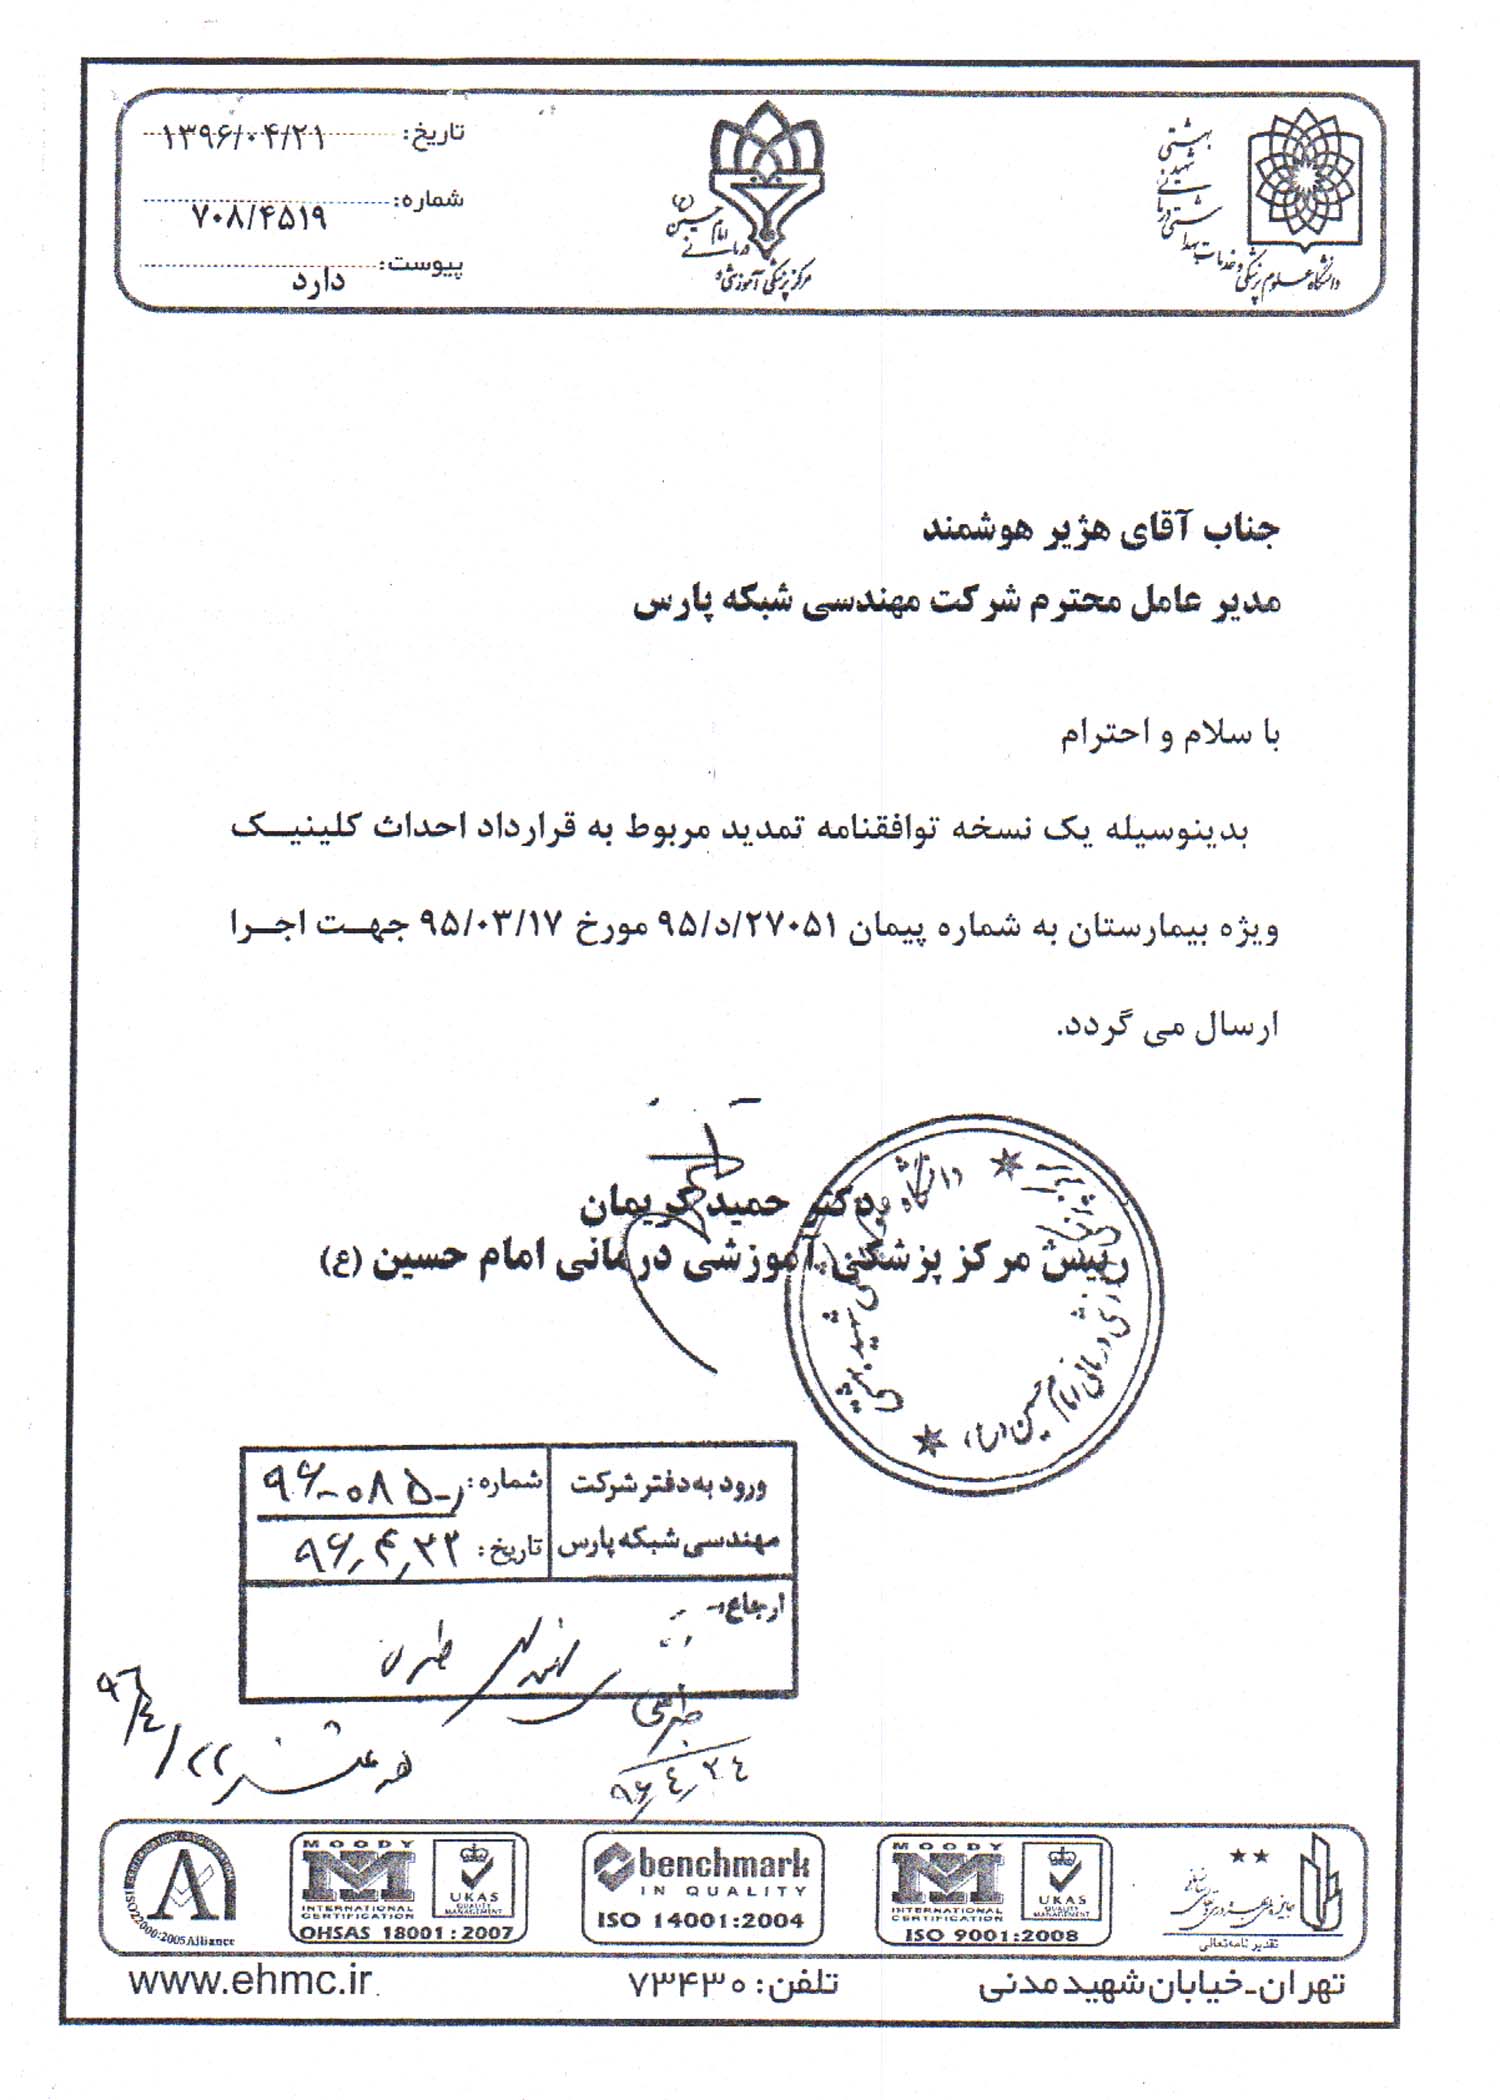 دانشگاه علوم پزشکی و خدمات بهداشتی درمانی شهید بهشتی
مرکز پزشکی آموزشی و درمانی امام حسین (ع)
تاریخ: ۱۳۹۶/۰۴/۲۱
شماره: ۷۰۸/۴۵۱۹
پیوست: دارد
جناب آقای هژیر هوشمند
مدیر عامل محترم شرکت مهندسی شبکه پارس
با سلام و احترام
بدینوسیله یک نسخه توافقنامه تمدید مربوط به قرارداد احداث کلینیک
ویژه بیمارستان به شماره پیمان ۹۵/د/۲۷۰۵۱ مورخ ۹۵/۰۳/۱۷ جهت اجرا
ارسال می گردد.
دکتر حمید کریمان
رییس مرکز پزشکی، آموزشی درمانی امام حسین (ع)
ورود به دفتر شرکت
مهندسی شبکه پارس
شماره: ۹۶-۰۸۵
تاریخ: ۹۶,۴,۲۲
ارجاع:
۹۶,۴,۲۴
۹۶/۴/۲۲
تقدیرنامه تعالی
MOODY
INTERNATIONAL
CERTIFICATION
UKAS
QUALITY
MANAGEMENT
ISO 9001:2008
benchmark
IN QUALITY
ISO 14001:2004
MOODY
INTERNATIONAL
CERTIFICATION
UKAS
QUALITY
MANAGEMENT
OHSAS 18001:2007
ISO22000:2005 Alliance
تهران-خیابان شهید مدنی
تلفن: ۷۳۴۳۰
www.ehmc.ir